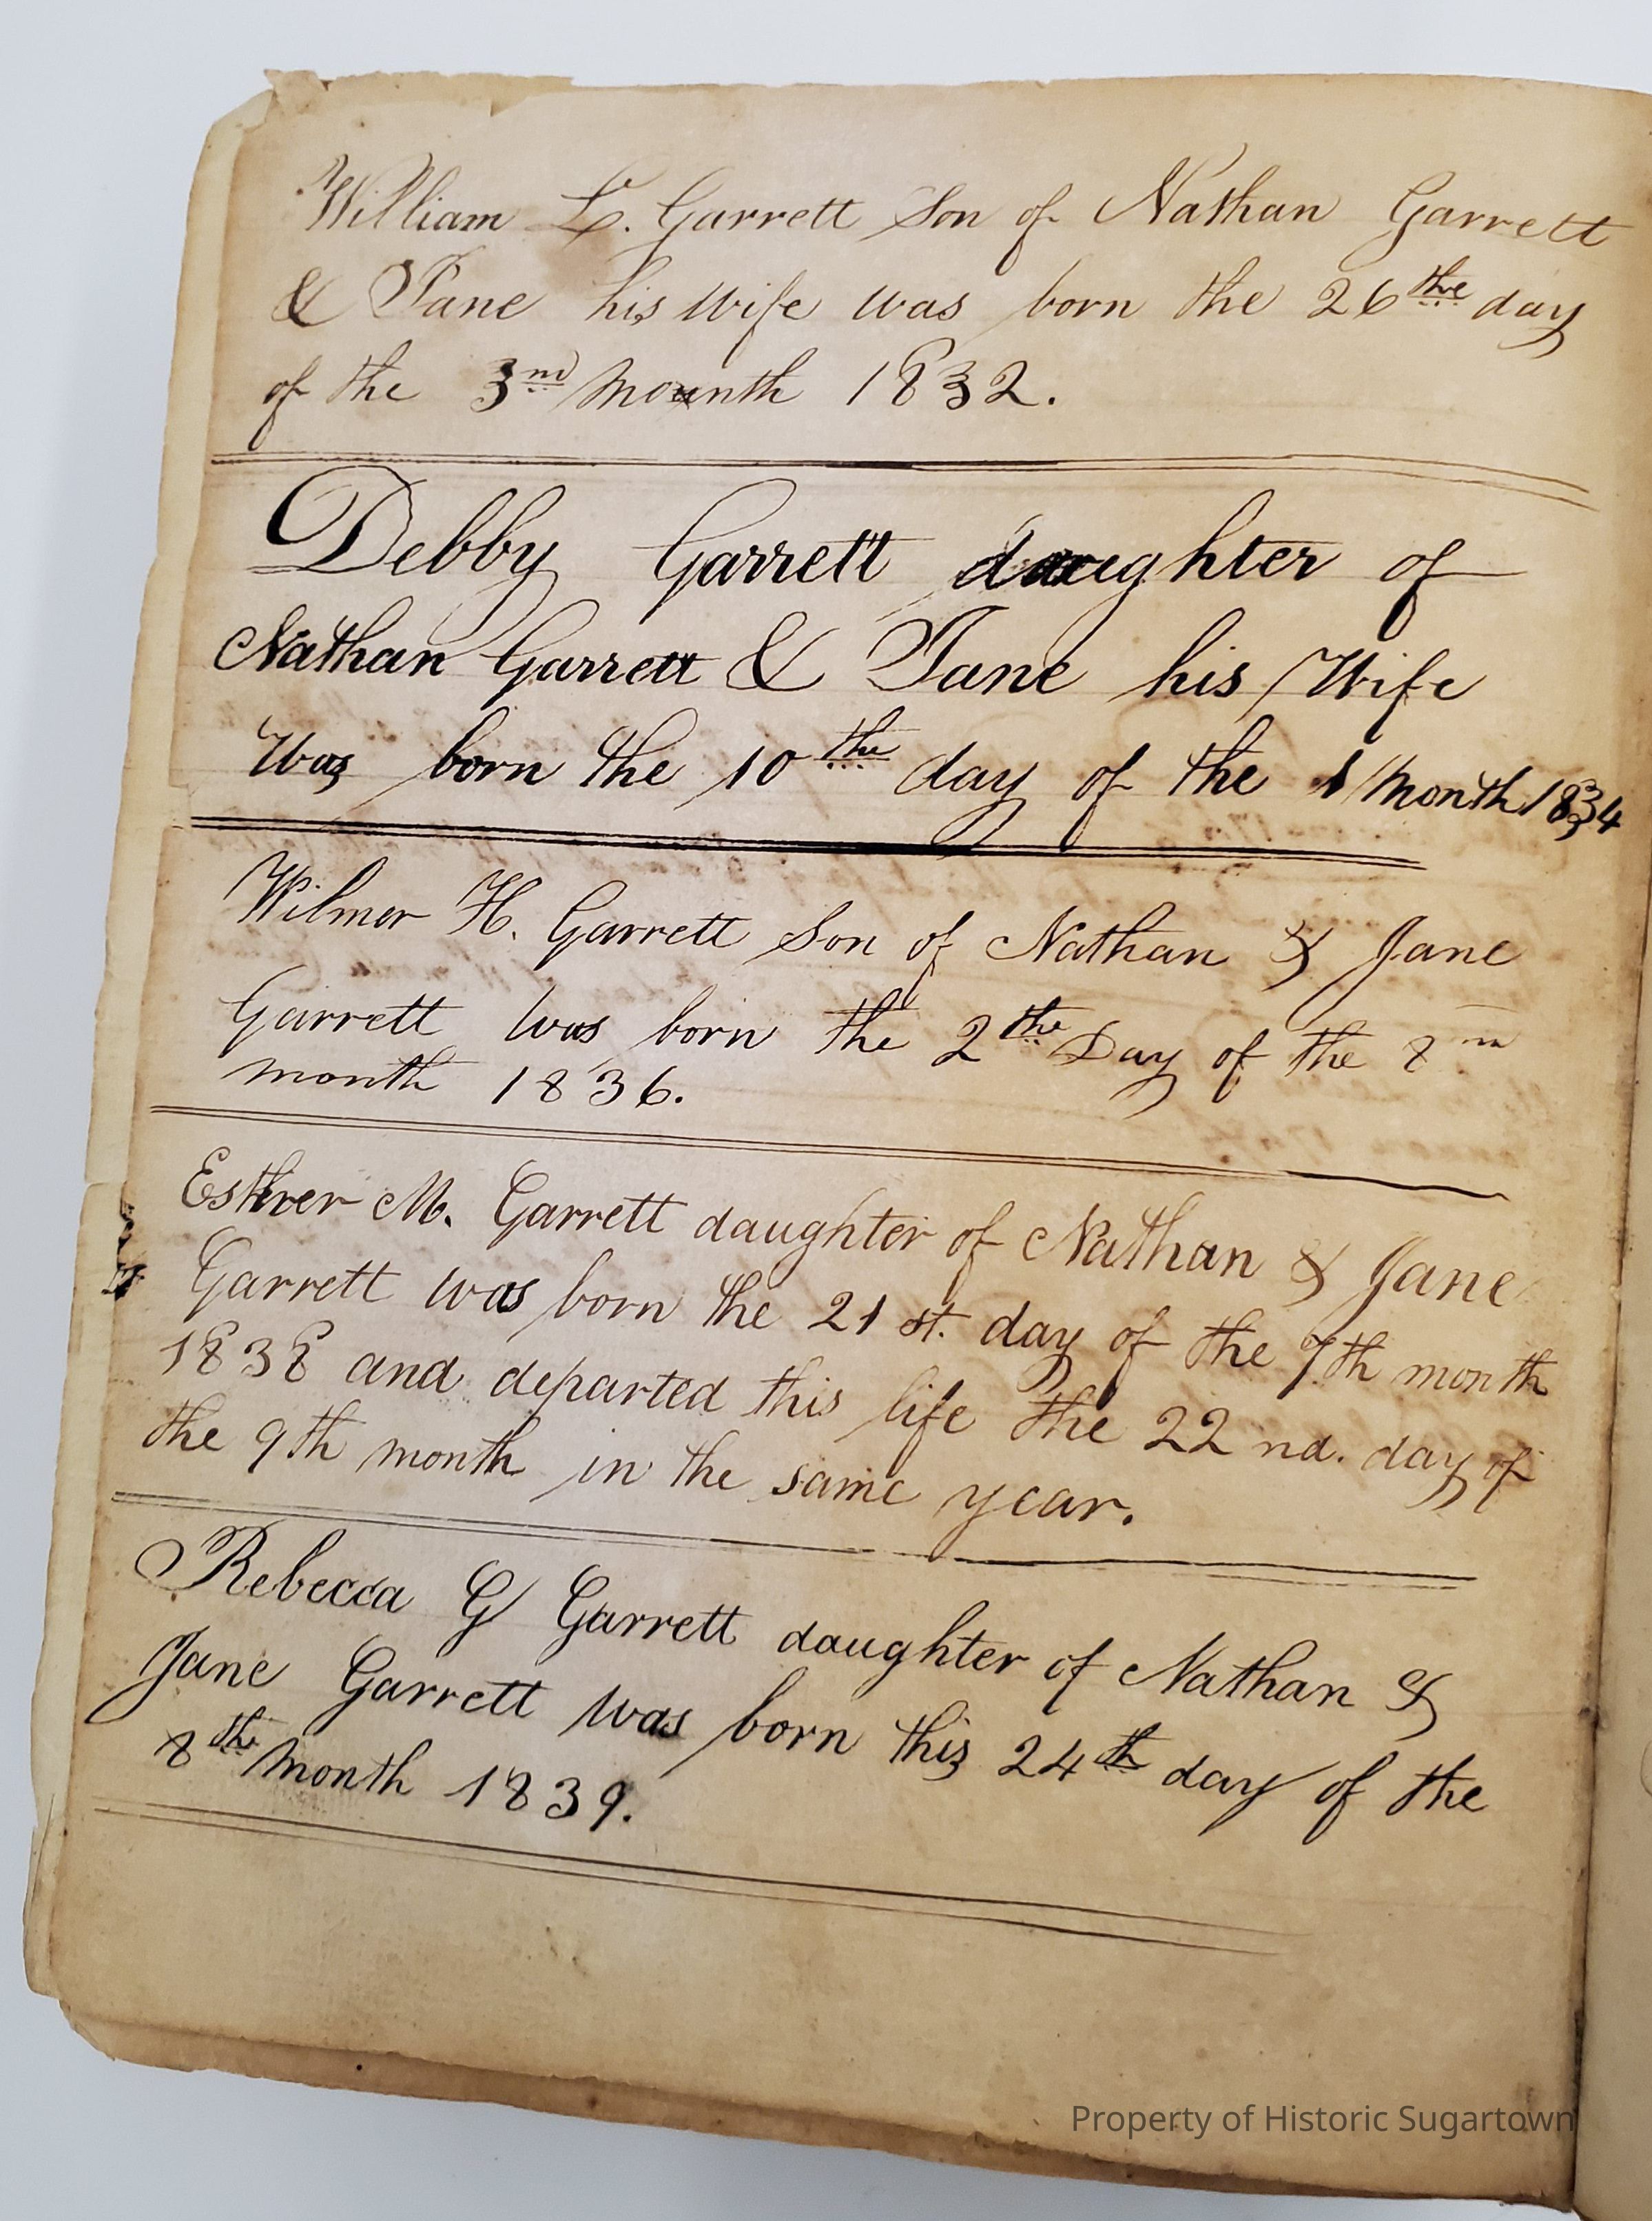 William L. Garrett Son of Nathan Garrett
& Jane his Wife was born the 26the day
of the 3nd mounth 1832.
Debby Garrett daughter of
Nathan Garrett & Jane his Wife
Was born the 10the day of the 1 Month 1834
Wilmer H. Garrett Son of Nathan & Jane
Garrett was born the 2the Day of the 8m
month 1836.
Esther M. Garrett daughter of Nathan & Jane
Garrett was born the 21 st. day of the 7th month
1838 and departed this life the 22 nd. day of
the 9th month in the same year.
Rebecca G Garrett daughter of Nathan &
Jane Garrett was born this 24th day of the
8th Month 1839.
Property of Historic Sugartown